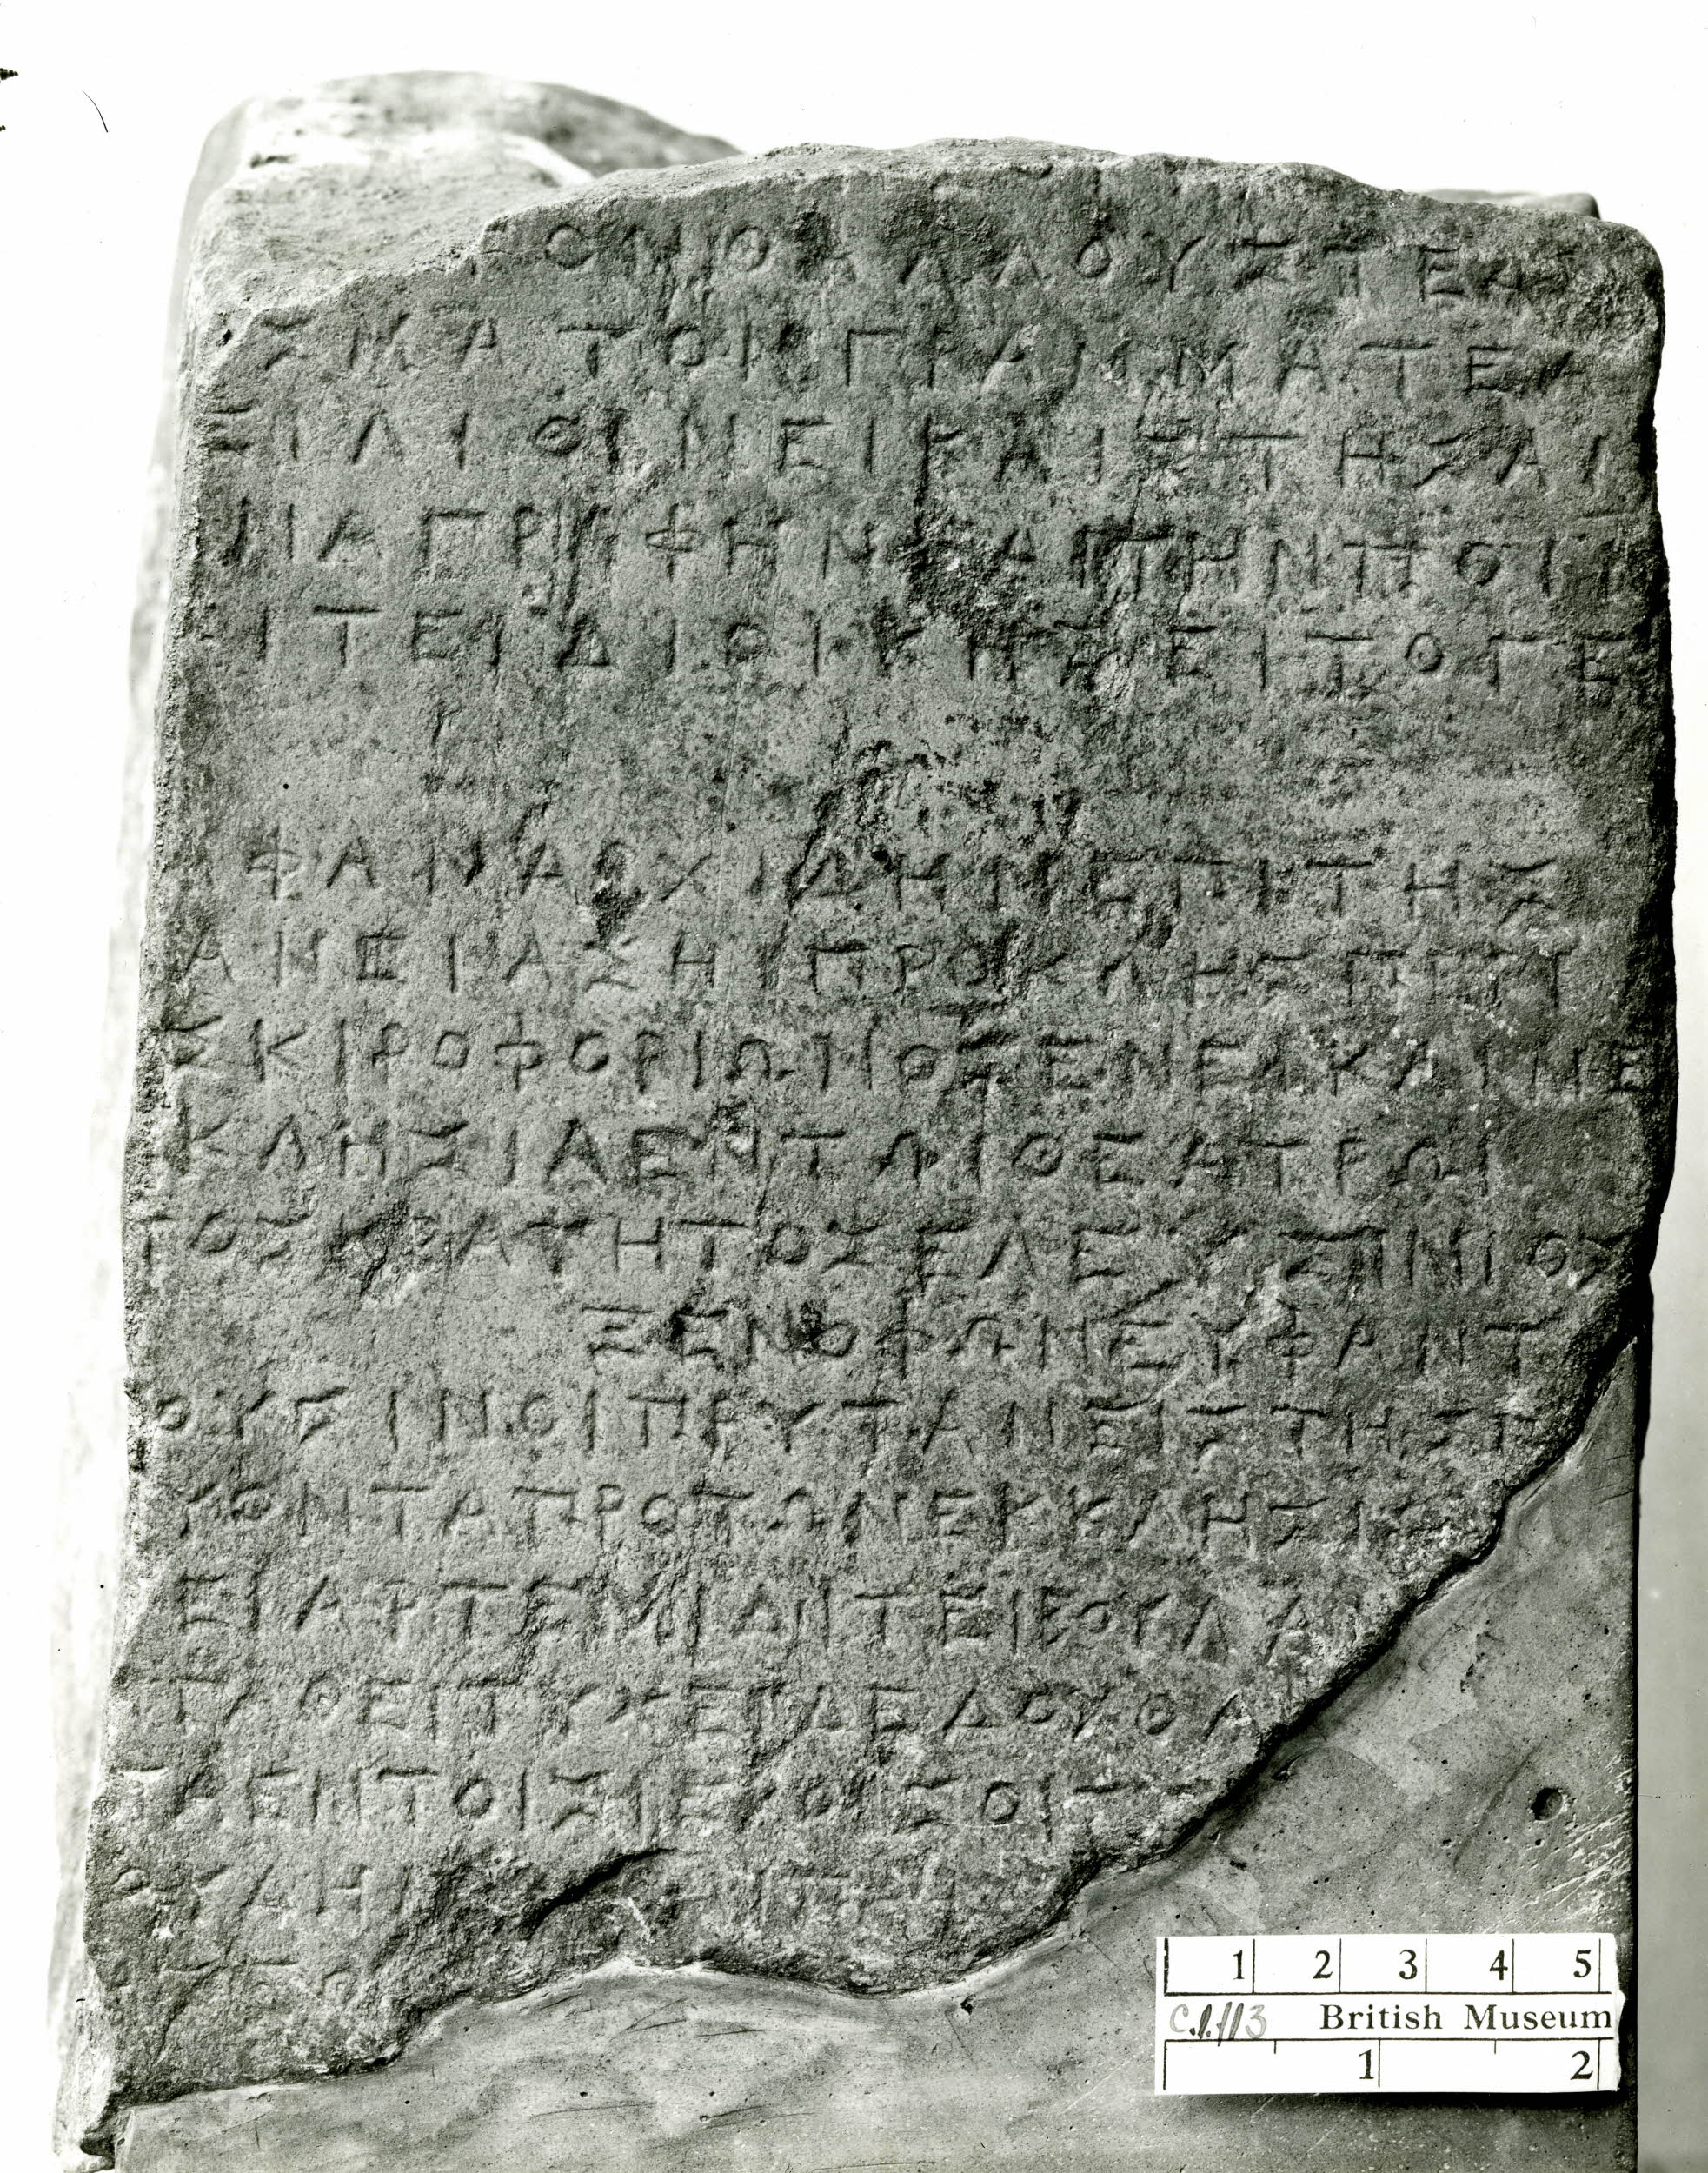 ΟΝΘΑΛΛΟΥΣΤΕΦΑ
ΣΜΑΤΟΝΓΡΑΜΜΑΤΕΑ
ΕΙΛΙΘΙΝΕΙΚΑΙΣΤΗΣΑΙ
ΝΑΓΡΑΦΗΝΚΑΙΤΗΝΠΟΙΗ
ΙΤΕΙΔΙΟΙΚΗΣΕΙΤΟΓΕ
ΦΑΝΑΡΧΙΔΗΝΕΠΙΤΗΣ
ΑΝΕΙΑΣΗΙΠΡΟΚΛΗΣΠΕΡΙ
ΣΚΙΡΟΦΟΡΙΩΝΟΣΕΝΕΙΚΑΙΝΕ
ΚΚΛΗΣΙΑΕΝΤΩΙΘΕΑΤΡΩΙ
ΤΟΣΚΡΑΤΗΤΟΣΕΛΕΥΣΙΝΙΟΣ
ΞΕΝΟΦΩΝΕΥΦΑΝΤ
ΟΥΣΙΝΟΙΠΡΥΤΑΝΕΙΣΤΗΣΠ
ΥΟΝΤΑΠΡΟΤΩΝΕΚΚΛΗΣΙΩ
ΕΙΑΡΤΕΜΙΔΙΤΕΙΒΟΥΛΑΙ
ΓΑΘΕΙΤΥΧΕΙΔΕΔΟΧΘΑ
ΤΑΕΝΤΟΙΣΙΕΡΟΙΣΟΙΣ
ΟΥΛΗΙ
1 2 3 4 5
C.I. 113 British Museum
1 2